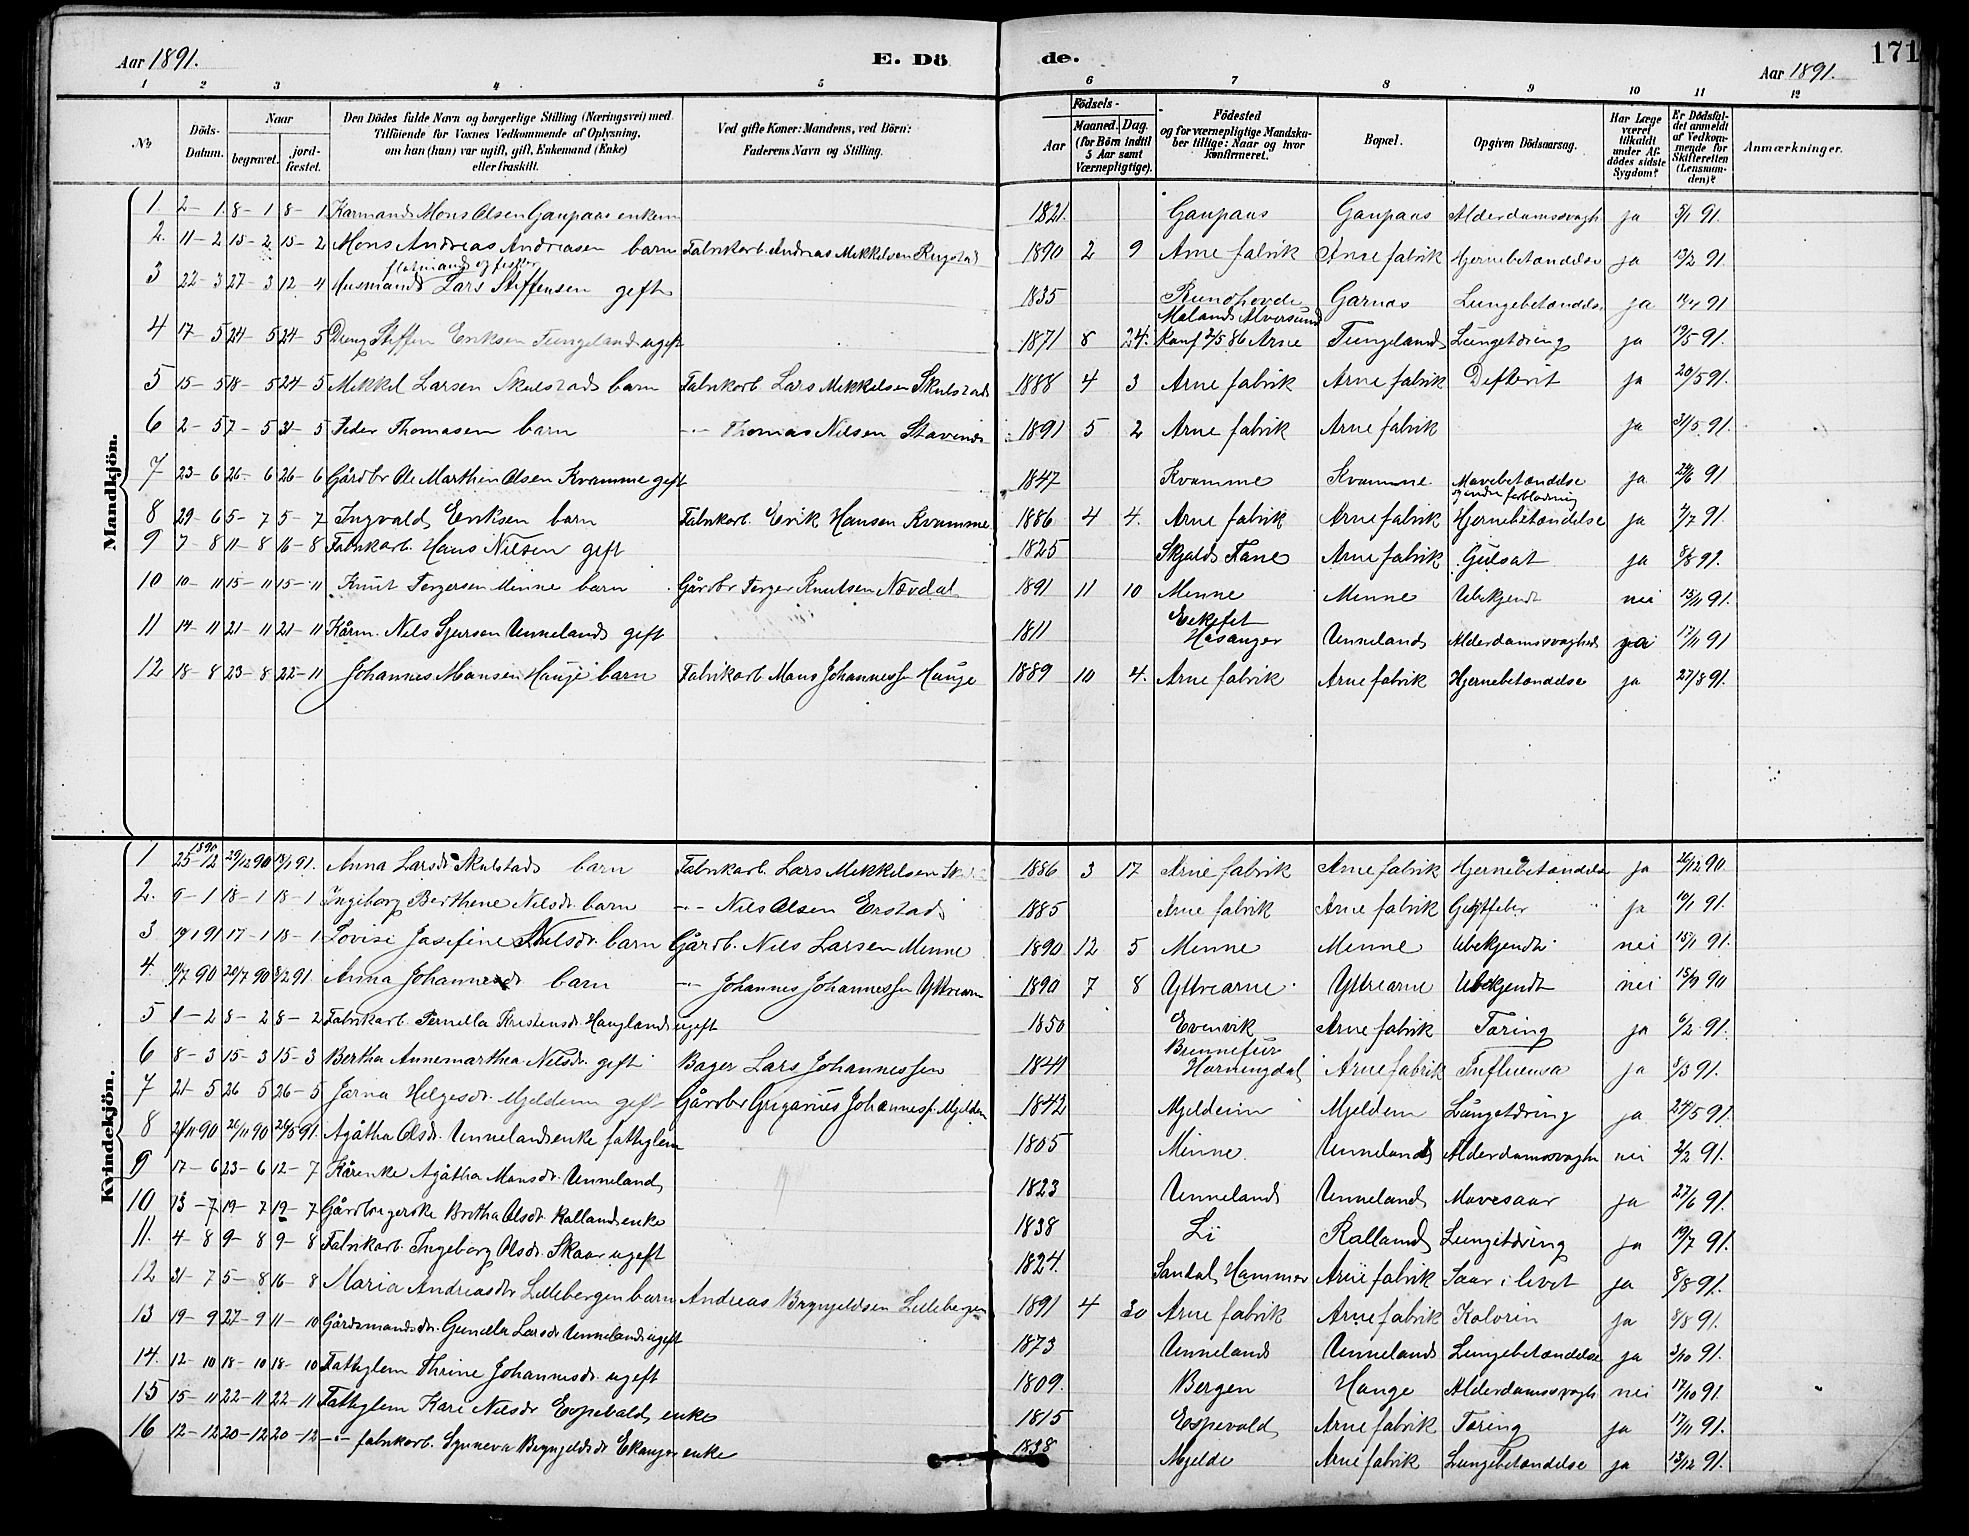 Aar 1891. E. Dö de. Aar 1891. 171
1 2 3 4 5 6 7 8 9 10 11 12
No Döds-Datum. Naar begravet. jordfæstet. Den Dödes fulde Navn og borgerlige Stilling (Næringsvei) med Tilföiende for Voxnes Vedkommende af Oplysning, om han (hun) var ugift, gift, Enkemand (Enke) eller fraskilt. Ved gifte Koner: Mandens, ved Börn: Faderens Navn og Stilling. Födsels- Aar Maaned. Dag. (for Börn indtil 5 Aar samt Værnepligtige). Födested og for værnepligtige Mandskaber tillige: Naar og hvor konfirmeret. Bopæl. Opgiven Dödsaarsag. Har Læge været tilkaldt under Afdödes sidste Sygdom? Er Dödsfaldet anmeldt af Vedkommende for Skifteretten (Lensmanden)? Anmærkninger.
Mandkjön.
1 2-1 8-1 8-1 Karmand Mons Olsen Gaupaas enkem 1821. Gaupaas Gaupaas Alderdomssvagh ja 5/1 91.
2. 11-2 15-2 15-2 Mons Andreas Andreasen barn Fabrikarb. Andreas Mikkelsen Ringstad 1890 2 9 Arne fabrik Arne fabrik Hjernebetændelse ja 13/2 91.
3 22-3 27-3 12-4 Husmand Lars Steffensen gift 1835 Rundhovde Garnæs Lungebetændelse ja 91
4 17-5 24-5 24-5 Dreng Steffen Eriksen Tungeland ugift 1871 8 24. Maland Alversund Konf 2/5 86 Arne Tungeland Lungetæring ja 19/5 91.
5 15-5 18-5 24-5 Mikkel Larsen Skulstad barn Fabrikarb. Lars Mikkelsen Skulstad 1888 4 3 Arne fabrik Arne fabrik Defterit ja 20/5 91.
6 2-5 7-5 31-5 Peder Thomasen barn -"- Thomas Nilsen Stavenes 1891 5 2 Arne fabrik Arne fabrik ja 31/5 91.
7 23-6 26-6 26-6 Gårdbr Ole Marthin Olsen Kvamme gift 1847 Kvamme Kvamme Mavebetændelse og indre forblødning ja 24/6 91
8 29-6 5-7 5-7 Ingvald Eriksen barn Fabrikarb. Erik Hansen Kvamme 1886 4 4. Arne fabrik Arne fabrik Hjernebetændelse ja 2/7 91.
9 7-8 11-8 16-8 Fabrikarb. Hans Nilsen gift 1825 Skjold Fane Arne fabrik Gulsot ja 8/8 91.
10 10-11 15-11 15-11 Knut Torgersen Minne barn Gårdbr Torger Knutsen Nævdal 1891 11 10 Minne Minne Ubekjendt nei 13/11 91.
11 14-11 21-11 21-11 Kårm. Nils Sjursen Unneland gift 1811 Hosanger Unneland Alderdomssvaghed ja 17/11 91
12 18-8 23-8 22-11 Johannes Monsen Hauge barn Fabrikarb Mons Johannesen Hauge 1889 10 4. Arne fabrik Arne fabrik Hjernebetændelse ja 27/8 91.
Kvindekjön.
1 1890 25-12 29/12 90 91. Anna Larsdr Skulstad barn Fabrikarb. Lars Mikkelsen 1886 3 17 Arne fabrik Arne fabrik Hjernebetændelse ja 26/12 90.
2. 9-1 18-1 18-1 Ingeborg Berthene Nilsdr barn -"- Nils Olsen Erstad 1885 Arne fabrik Arne fabrik Gigtfeber ja 91.
3 91 17-1 18-1 Lovise Josefine Nilsdr. barn Gårdb. Nils Larsen Minne 1890 12 5 Minne Minne Ubekjendt nei 15/1 91.
4. 90 20/7 90 8/2 91. Anna Johannesdr barn -"- Johannes Johannessen Yttrearne 1890 7 8 Yttrearne Yttrearne Ubekjendt nei 90
5 1-2 8-2 8-2 Fabrikarb. Pernella Kristensdr. Haugland ugift 1850 Evenvik Arne fabrik Tæring ja 6/2 91.
6 8-3 15-3 15-3 Bertha Annemartha Nilsdr. gift Bager Lars Johannessen 1844 Horningdal Arne fabrik Influensa ja 8/3 91.
7 21-5 26 5 26-5 Jorna Helgesdr. Mjeldeim gift Gårdbr Grigarius Johannesn. Mjeldem 1842 Mjeldeim Mjeldem Lungetæring ja 24/5 91.
8 21/11 90 26/11 90 91. Agåtha Olsdr. Unneland enke fattiglem 1805 Minne. Unneland Alderdomssvagh nei 2/2 91.
9 17-6 23-6 12-7 Kårenke Agåtha Monsdr. Unneland 1823 Unneland Unneland Mavesaar ja 27/6 91.
10 13-7 19-7 19-7 Gårdbrugerske Britha Olsdr. Rolland enke 1838 Li Rolland Lungetæring ja 19/7 91.
11. 4-8 9-8 9-8 Fabrikarb. Ingeborg Olsdr. Skaar ugift 1824. Sandal Hammer Arne fabrik Saar i livet ja 8/8 91.
12 31-7 5-8 16-8 Maria Andreasdr Lillebergen barn Andreas Brynjeldsen Lillebergen 1891 4 30 Arne fabrik Arne fabrik Kolorin ja 8/8 91.
13 19-9 27-9 11-10 Gårdmandsdr. Gunilla Larsdr Unneland ugift 1873 Unneland Unneland Lungebetændelse ja 3/10 91.
14. 12-10 18-10 18-10 Fattiglem Thrine Johannesdr. ugift 1809. Bergen Hauge Alderdomssvagh nei 17/10 91.
15 15-11 22-11 22-11 Fattiglem Kari Nilsdr Espevold enke 1815 Espevold Arne fabrik Tæring ja 17/11 91.
16 12-12 20-12 20-12 -"- fabrikarb. Synneva Brynjeldsdr Ekanger enke 1838 Mjelde Arne fabrik Lungebetændelse ja 13/12 91.